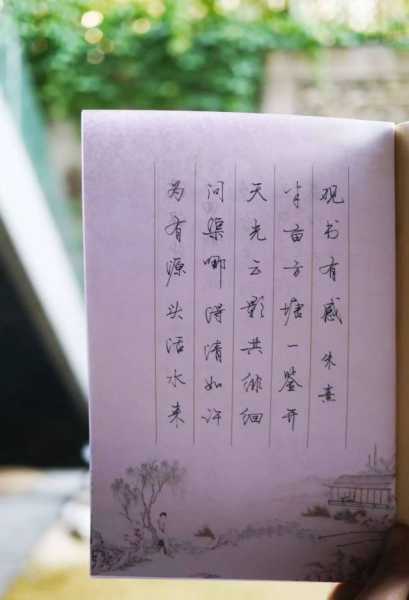 观书有感 朱熹
半亩方塘一鉴开
天光云影共徘徊
问渠哪得清如许
为有源头活水来